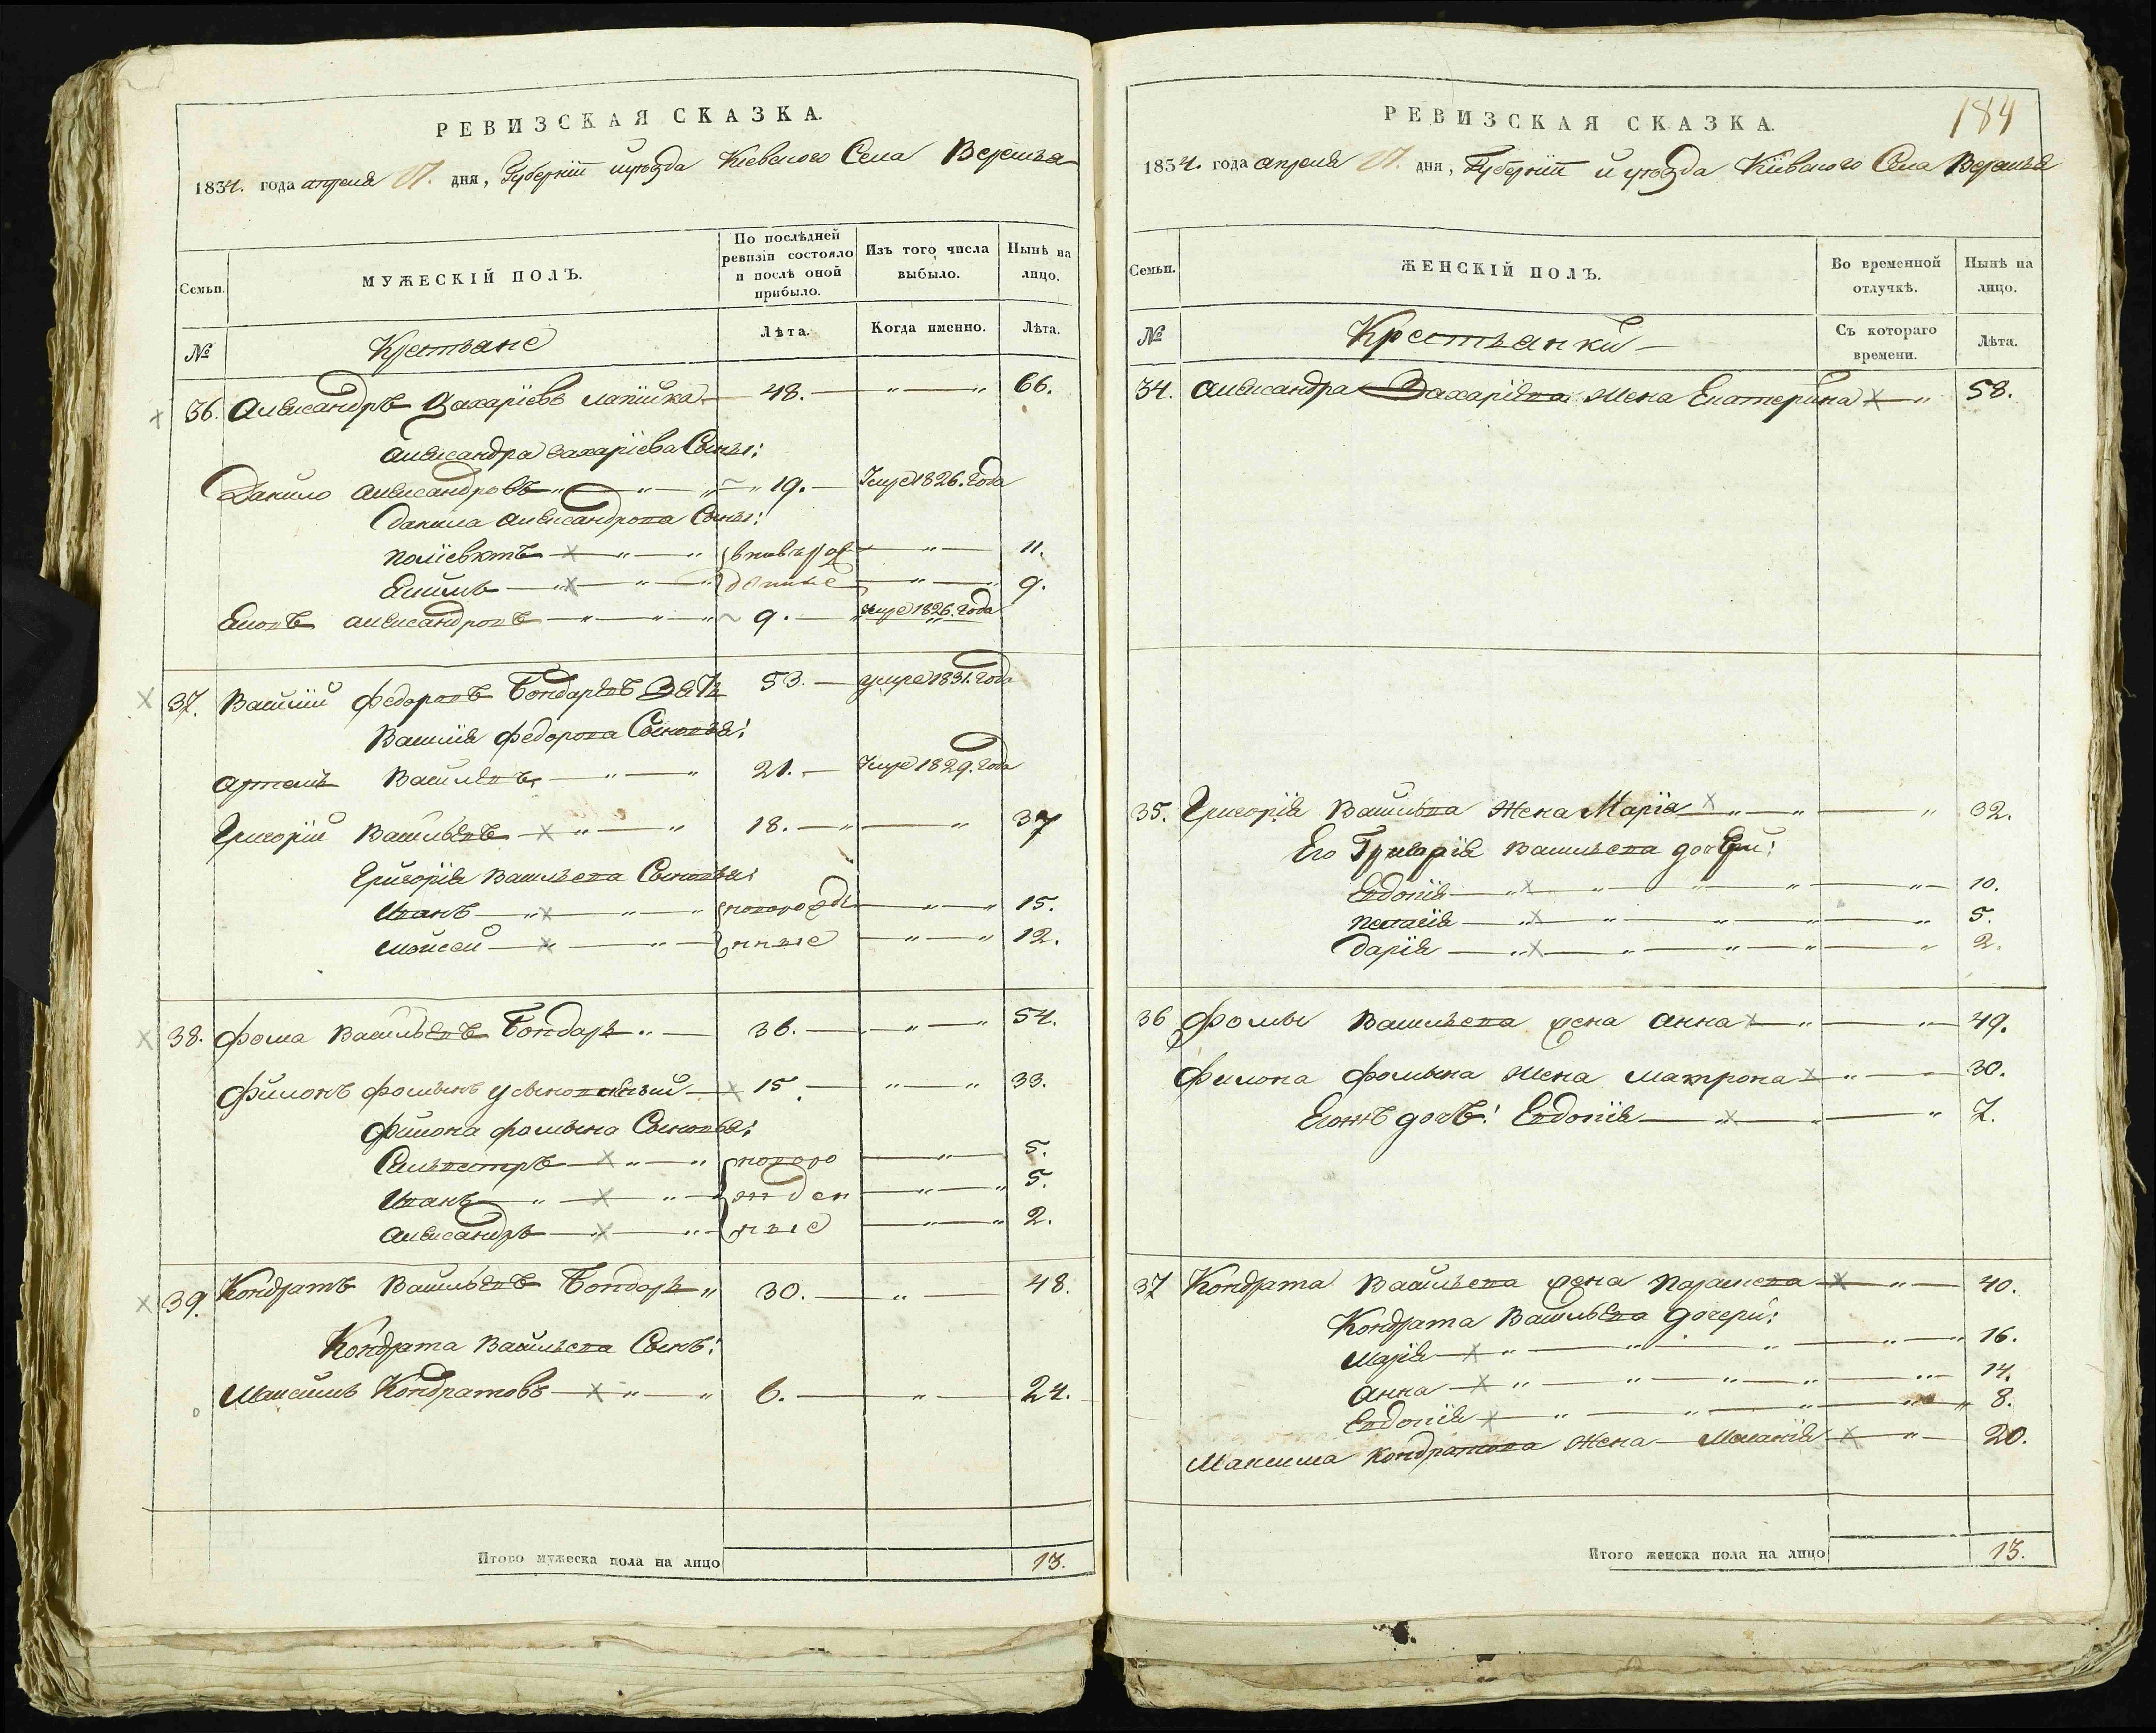 РЕВИЗСКАЯ СКАЗКА.
1834. года апреля 17. дня, Губернїи и уѣзда Кіевского Села Веремья
Семьи.
МУЖЕСКІЙ ПОЛЪ.
По послѣдней ревизіи состояло и послѣ оной прибыло.
Изъ того числа выбыло.
Нынѣ на лицо.
№
Крестьяне
Лѣта.
Когда именно.
Лѣта.
36. Александръ Захаріевъ Лапика 48. " " 66.
Александра Захаріева Сыны:
Данило Александровъ " " " 19. Умре 1826. Года
Данила Александрова Сыны:
Поліевктъ " " " 11.
Емилъ " " " " 9.
Александровъ " " " 9. Умре 1826. Года
37. Василій Федоровъ Бондаревъ Зять 53. умре 1831. Года
Василія Федорова Сыновья:
Артемъ Васильевъ, " " 21. Умре 1829. Года
Григорій Васильевъ " " 18. " " 37
Григорія Васильева Сыновья:
Иванъ " " " новорожде " " 15.
Мойсей " " нные " " 12.
38. Фома Васильевъ Бондарь " 36. " " 54.
Филонъ Фоминъ усыновленный 15. " " 33.
Филона Фомина Сыновья:
Сильвестръ " " новоро " 5.
Иванъ " " жден " " 5.
Александръ " " ные " " 2.
39. Кондратъ Васильевъ Бондарь " 30. " 48.
Кондрата Васильева Сынъ:
Максимъ Кондратовъ " " 6. " 24.
Итого мужеска пола на лицо 13.
184
РЕВИЗСКАЯ СКАЗКА.
1834. года апреля 17. дня, Губернїи и уѣзда Кіевского Села Веремья
Семьи.
ЖЕНСКІЙ ПОЛЪ.
Во временной отлучкѣ.
Нынѣ на лицо.
№
Крестьянки
Съ котораго времени.
Лѣта.
34. Александра Захаріева Жена Екатерина " 58.
35. Григорія Васильева Жена Марія " " " 32.
Его Григорія Васильева дочери:
Евдокія " " " " " 10.
Пелагія " " " " " 5.
Дарія " " " " " 2.
36 Фомы Васильева жена Анна " " 49.
Филона Фомина Жена Матрона " 30.
Егожъ дочь: Евдокія " " " 7.
37 Кондрата Васильева жена Параскева " 40.
Кондрата Васильева дочери:
Марія " " " " " 16.
Анна " " " " " 14.
Евдокія " " " " " 8.
Максима Кондратова Жена Меланія " 20.
Итого женска пола на лицо 13.